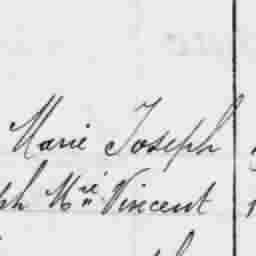 Marie Joseph
ph Mrie Vincent